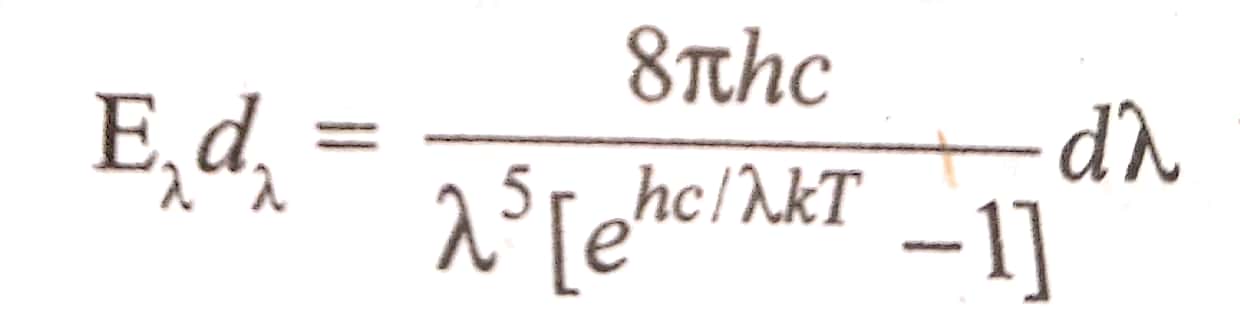 E_λ d_λ = \frac{8πhc}{λ^5 [e^{hc/λkT} −1]} dλ